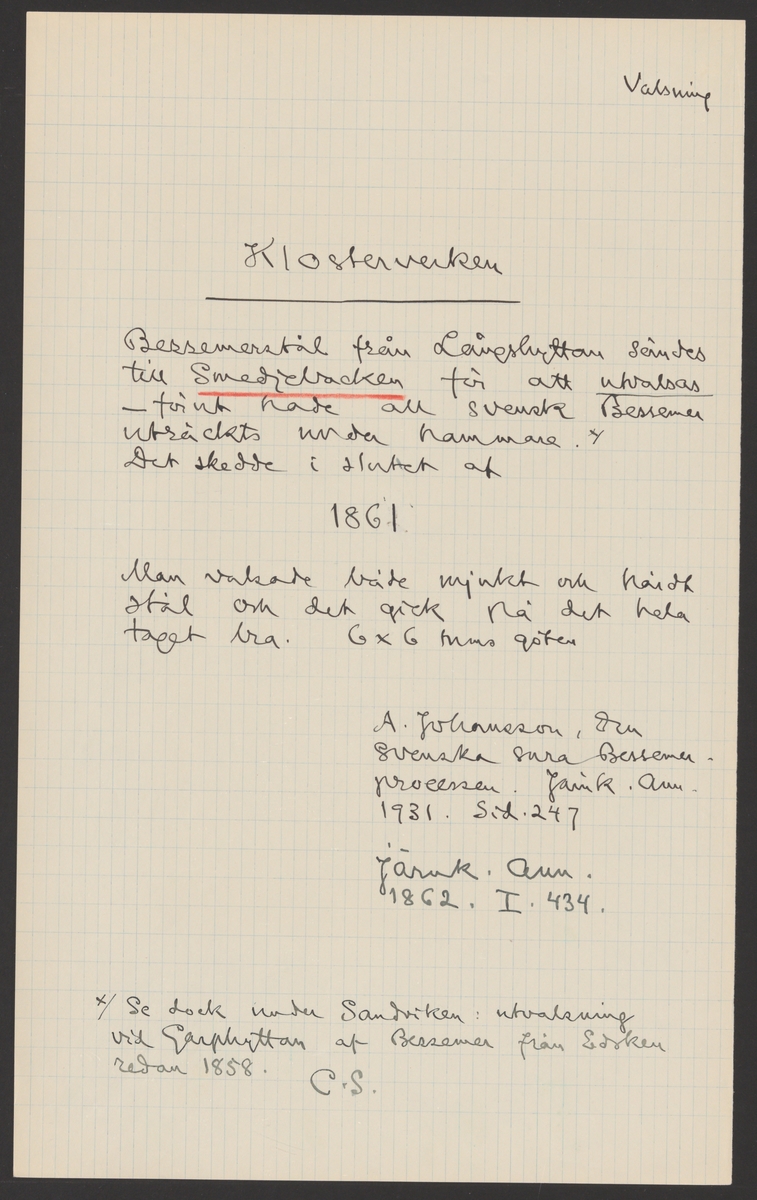 Valsning
Klosterverken
Bessemerstål från Långshyttan sändes
till Smedjebacken för att utvalsas
– förut hade all svensk Bessemer
uträckts under hammare. x/
Det skedde i slutet af
1861
Man valsade både mjukt och hårdt
stål och det gick på det hela
taget bra. 6 x 6 tums göten
A. Johansson, Den
svenska sura Bessemer-
processen. Järnk. Ann.
1931. Sid. 247
Järnk. Ann.
1862. I. 434.
x/ Se dock under Sandviken: utvalsning
vid Garphyttan af Bessemer från Edsken
redan 1858.
C.S.